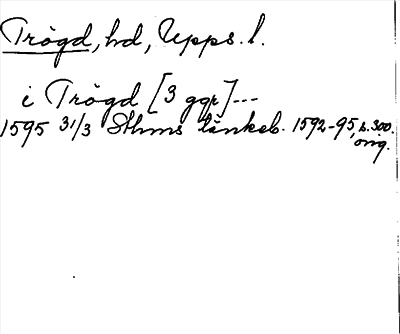 Trögd, hd, Upps. l.
i Trögd [3 ggr] ---
1595 31/3 Sthms tänkeb. 1592-95, s. 300.
orig.